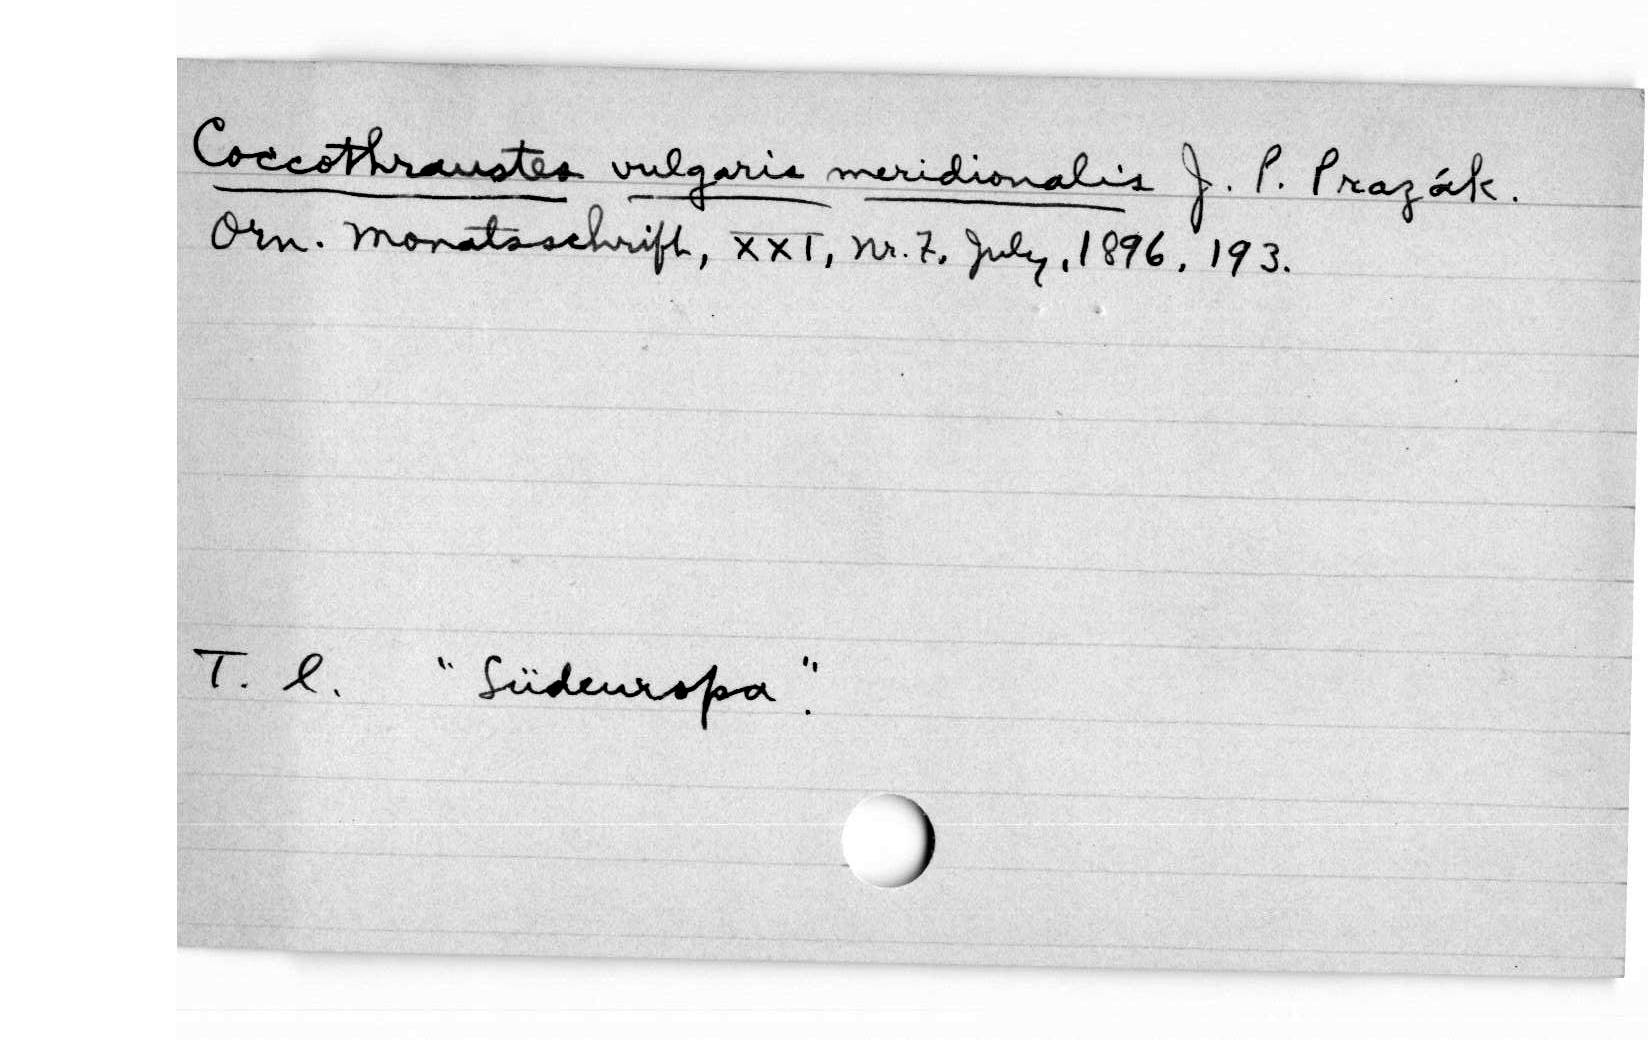 Coccothraustes vulgaris meridionalis J. P. Prazák.
Orn. Monatsschrift, XXI, Nr. 7, July, 1896, 193.
T. l. "Südeuropa".